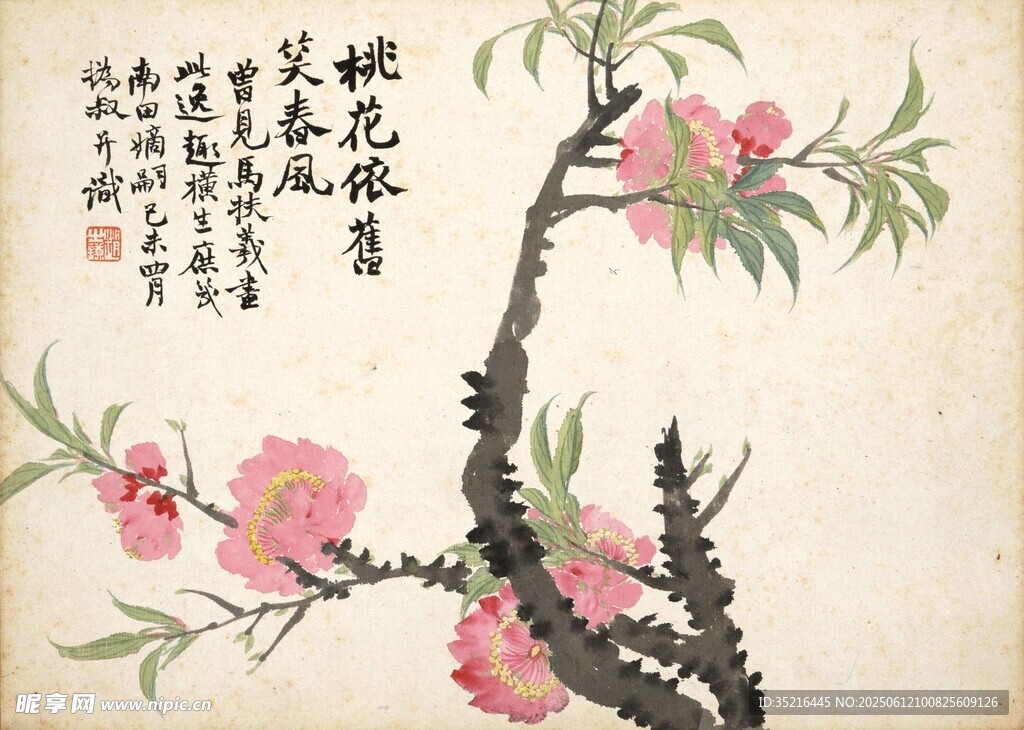 桃花依舊
笑春風
曾見馬扶羲畫
此逸趣橫生庶幾
南田嫡嗣己未四月
撝叔并識
昵享网 www.nipic.cn
ID:35216445 NO:20250612100825609126